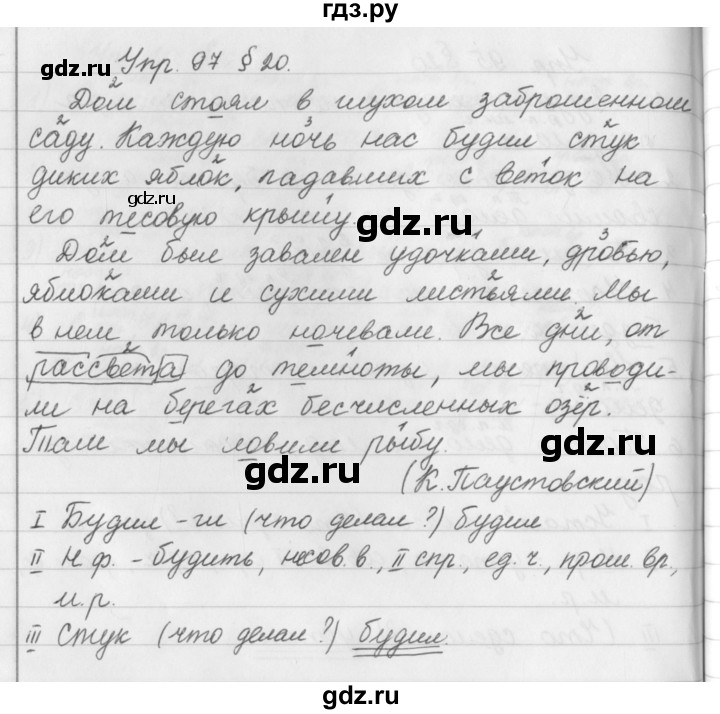 гдз.ру
gdz.ru
Упр. 97 § 20.
2
Дом стоял в глухом заброшенном
2 3 2
саду. Каждую ночь нас будил стук
2 1
диких яблок, падавших с веток на
gdz.ru
его тесовую крышу.
gdz.ru
2 1 3
Дом был завален удочками, дробью,
2 2
яблоками и сухими листьями. Мы
2
в нем только ночевали. Все дни, от
рассвета до темноты, мы проводи-
2 2
ли на берегах бесчисленных озёр.
Там мы ловили рыбу.
gdz.ru
gdz.ru
(К. Паустовский)
I Будил - гл (что делал?) будил
II Н.ф. - будить, несов. в., II спр., ед. ч., прош. вр.,
м.р.
III Стук (что делал?) будил.
gdz.ru
gdz.ru